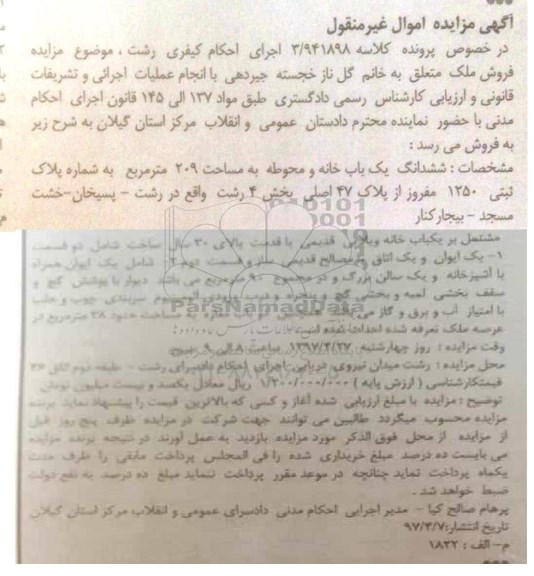 آگهی مزایده اموال غیرمنقول
در خصوص پرونده کلاسه ۳/۹۴۱۸۹۸ اجرای احکام کیفری رشت ، موضوع مزایده
فروش ملک متعلق به خانم گل ناز خجسته جیردهی با انجام عملیات اجرائی و تشریفات
قانونی و ارزیابی کارشناس رسمی دادگستری طبق مواد ۱۳۷ الی ۱۴۵ قانون اجرای احکام
مدنی با حضور نماینده محترم دادستان عمومی و انقلاب مرکز استان گیلان به شرح زیر
به فروش می رسد :
مشخصات : ششدانگ یک باب خانه و محوطه به مساحت ۲۰۹ مترمربع به شماره پلاک
ثبتی ۱۲۵۰ مفروز از پلاک ۴۷ اصلی بخش ۴ رشت واقع در رشت - پسیخان-خشت
مسجد - بیجارکنار
مشتمل بر یکباب خانه ویلایی قدیمی با قدمت بالای ۳۰ سال ساخت شامل دو قسمت
۱- یک ایوان و یک اتاق با مصالح قدیمی ساز و قسمت دوم ۲- شامل یک ایوان همراه
با آشپزخانه و یک سالن بزرگ و در مجموع ۹۰ مترمربع می باشد دیوار با پوشش گچ و
سقف بخشی لمبه و بخشی گچ و پنجره و درب ورودی آلومینیوم سربندی چوب و حلب
با امتیاز آب و برق و گاز می باشد به مساحت حدود ۲۸ مترمربع در
عرصه ملک تعرفه شده احداث شده است
وقت مزایده : روز چهارشنبه ۱۳۹۷/۳/۲۷ ساعت ۸ الی ۹ صبح
محل مزایده : رشت میدان نیروی دریایی اجرای احکام دادسرای رشت - طبقه دوم اتاق ۳۶
قیمتکارشناسی ( ارزش پایه ) ۱/۲۰۰/۰۰۰/۰۰۰ ریال معادل یکصد و بیست میلیون تومان
توضیح : مزایده با مبلغ ارزیابی شده آغاز و کسی که بالاترین قیمت را پیشنهاد نماید برنده
مزایده محسوب میگردد طالبین می توانند جهت شرکت در مزایده ظرف پنج روز قبل
از مزایده از محل فوق الذکر مورد مزایده بازدید به عمل آورند در نتیجه برنده مزایده
می بایست ده درصد مبلغ خریداری شده را فی المجلس پرداخت مابقی را ظرف مدت
یکماه پرداخت نماید چنانچه در موعد مقرر پرداخت ننماید مبلغ ده درصد به نفع دولت
ضبط خواهد شد .
پرهام صالح کیا - مدیر اجرایی احکام مدنی دادسرای عمومی و انقلاب مرکز استان گیلان
تاریخ انتشار: ۹۷/۳/۷
م- الف : ۱۸۲۲
ParsNamadData